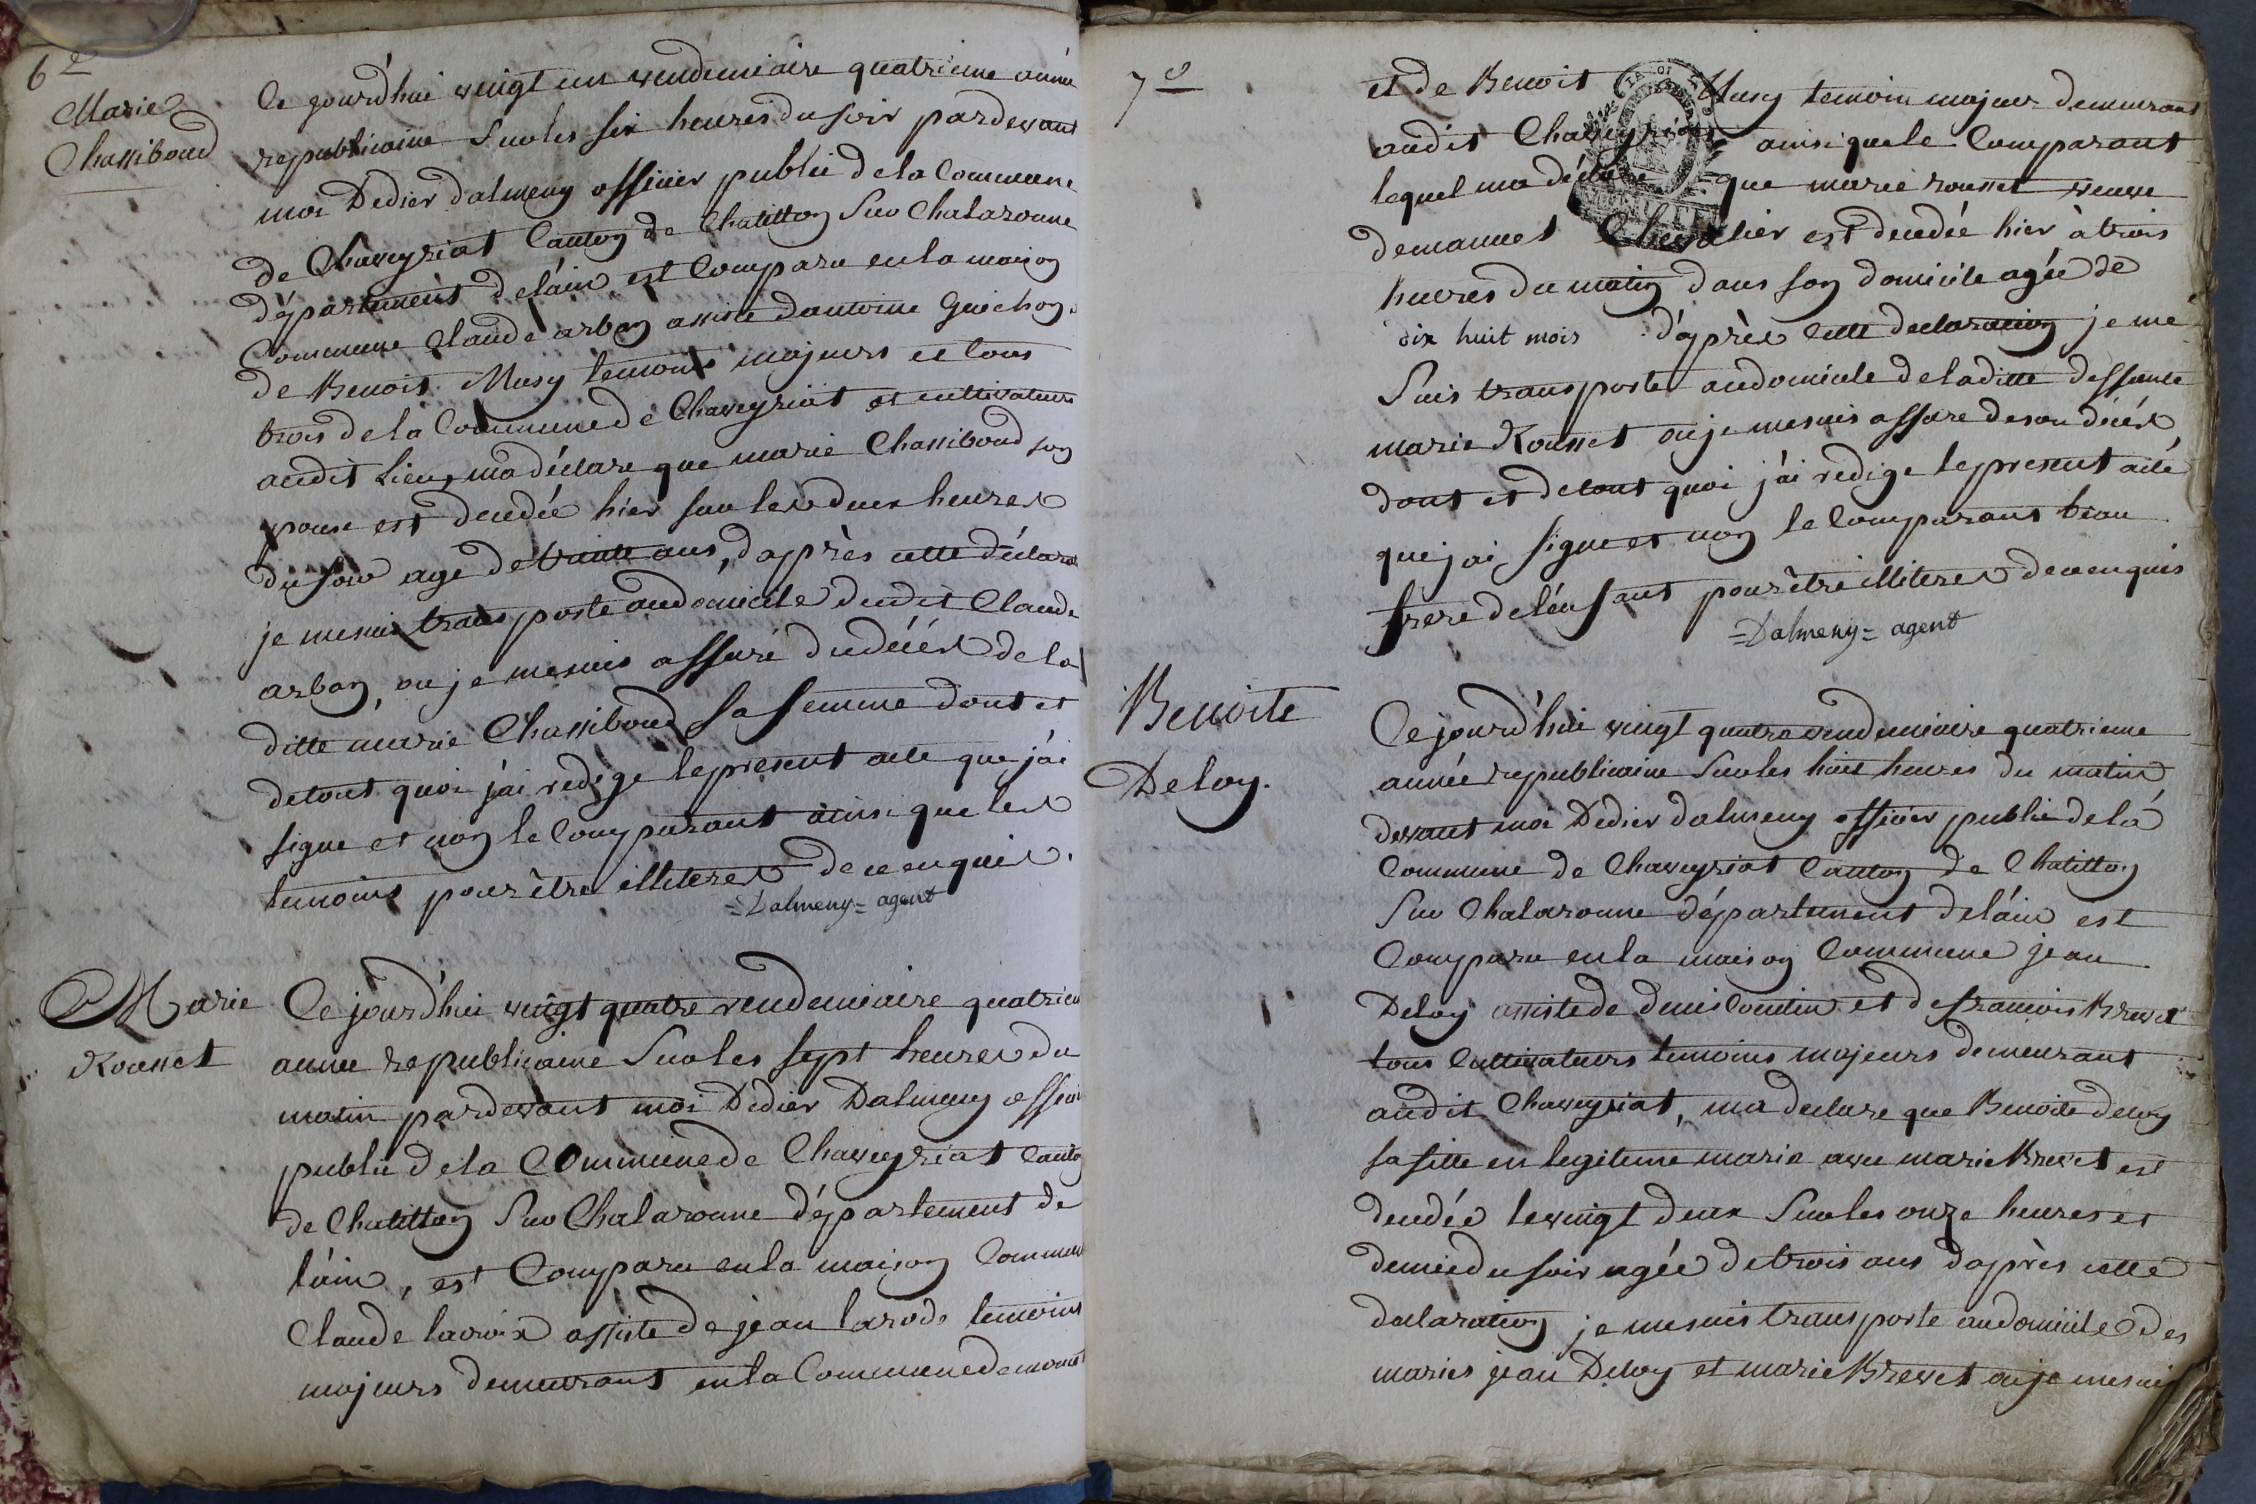 6e
Marie
Chassiboud
Ce jourd'hui vingt un vendemiaire quatrieme année
republicaine Sur les six heures du soir pardevant
moi Dedier dalmeny officier public de la Commune
de Chaveyriat Canton de Chatillon Sur Chalaronne
département de l'ain est Comparu en la maison
Commune Claude arban assisté d'antoine Guichon
de Benoit Musy temoins majeurs et tous
trois de la Commune de Chaveyriat et cultivateurs
audit Lieu, ma déclaré que marie Chassiboud son
epouse est decedée hier sur les deux heures
du soir age de trente ans, d'après cette déclara
je me suis transporte au domicile dudit Claude
arban, ou je me suis assuré du décés de la
ditte marie Chassiboud sa femme dont et
detout quoi j'ai redige le present acte que j'ai
signe et non le Comparant ainsi que les
temoins pour être illiteres de ce enquis.
=Dalmeny= agent
Marie
Rousset
Ce jourd'hui vingt quatre vendemiaire quatriem
année republicaine Sur les sept heures du
matin pardevant moi Dedier Dalmeny officier
public de la Commune de Chaveyriat Canton
de Chatillon Sur Chalaronne département de
l'ain, est Comparu en la maison Commune
Claude lacroix assisté de jean larode temoins
majeurs demeurant en la Commune de
7e
et de Benoit Musy temoin majeur demeurant
audit Chaveyriat ainsi que le Comparant
lequel ma déclaré que marie rousset veuve
demanuel Chevalier est decedée hier à trois
heures du matin dans son domicile agée de
dix huit mois d'après cette declaration je me
Suis transporte audomicile de laditte deffunte
marie Rousset ou je me suis assure de son décés
dont et detout quoi j'ai redige le present acte
que j'ai signe et non le Comparant beau
frere de l'enfant pour être illiteres de ce enquis
=Dalmeny= agent
Benoite
Deloy.
Ce jourd'hui vingt quatre vendemiaire quatrieme
année republicaine Sur les huit heures du matin
devant moi Dedier dalmeny officier public de la
Commune de Chaveyriat Canton de Chatillon
Sur Chalaronne département de l'ain est
Comparu en la maison Commune jean
Deloy assisté de denis Coutin et de francois Brevet
tous Cultivateurs temoins majeurs demeurant
audit Chaveyriat, ma declare que Benoite deloy
sa fille en legitime marie avec marie Brevet est
decedée le vingt deux Sur les onze heures et
demie du soir agée de trois ans d'après cette
declaration je me suis transporte au domicile des
maries jean Deloy et marie Brevet ou je me suis